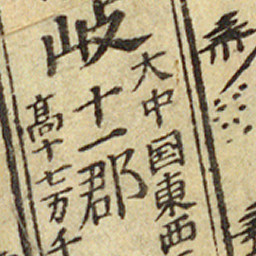 大中国東西
岐十一郡
高十七万千